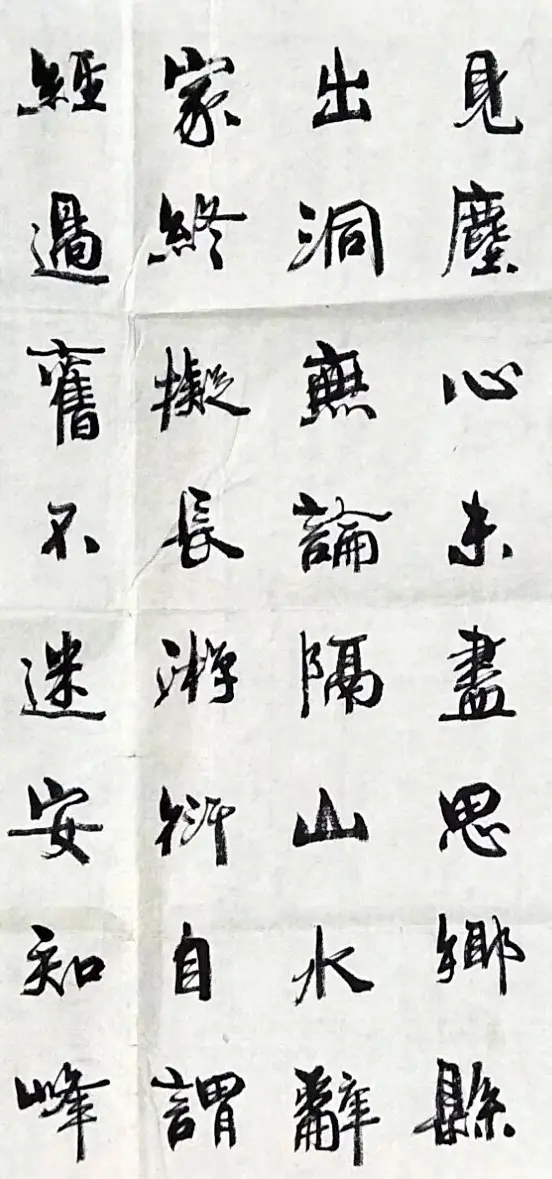 見塵心未盡思鄉縣
出洞無論隔山水辭
家終擬長游衍自謂
經過舊不迷安知峰